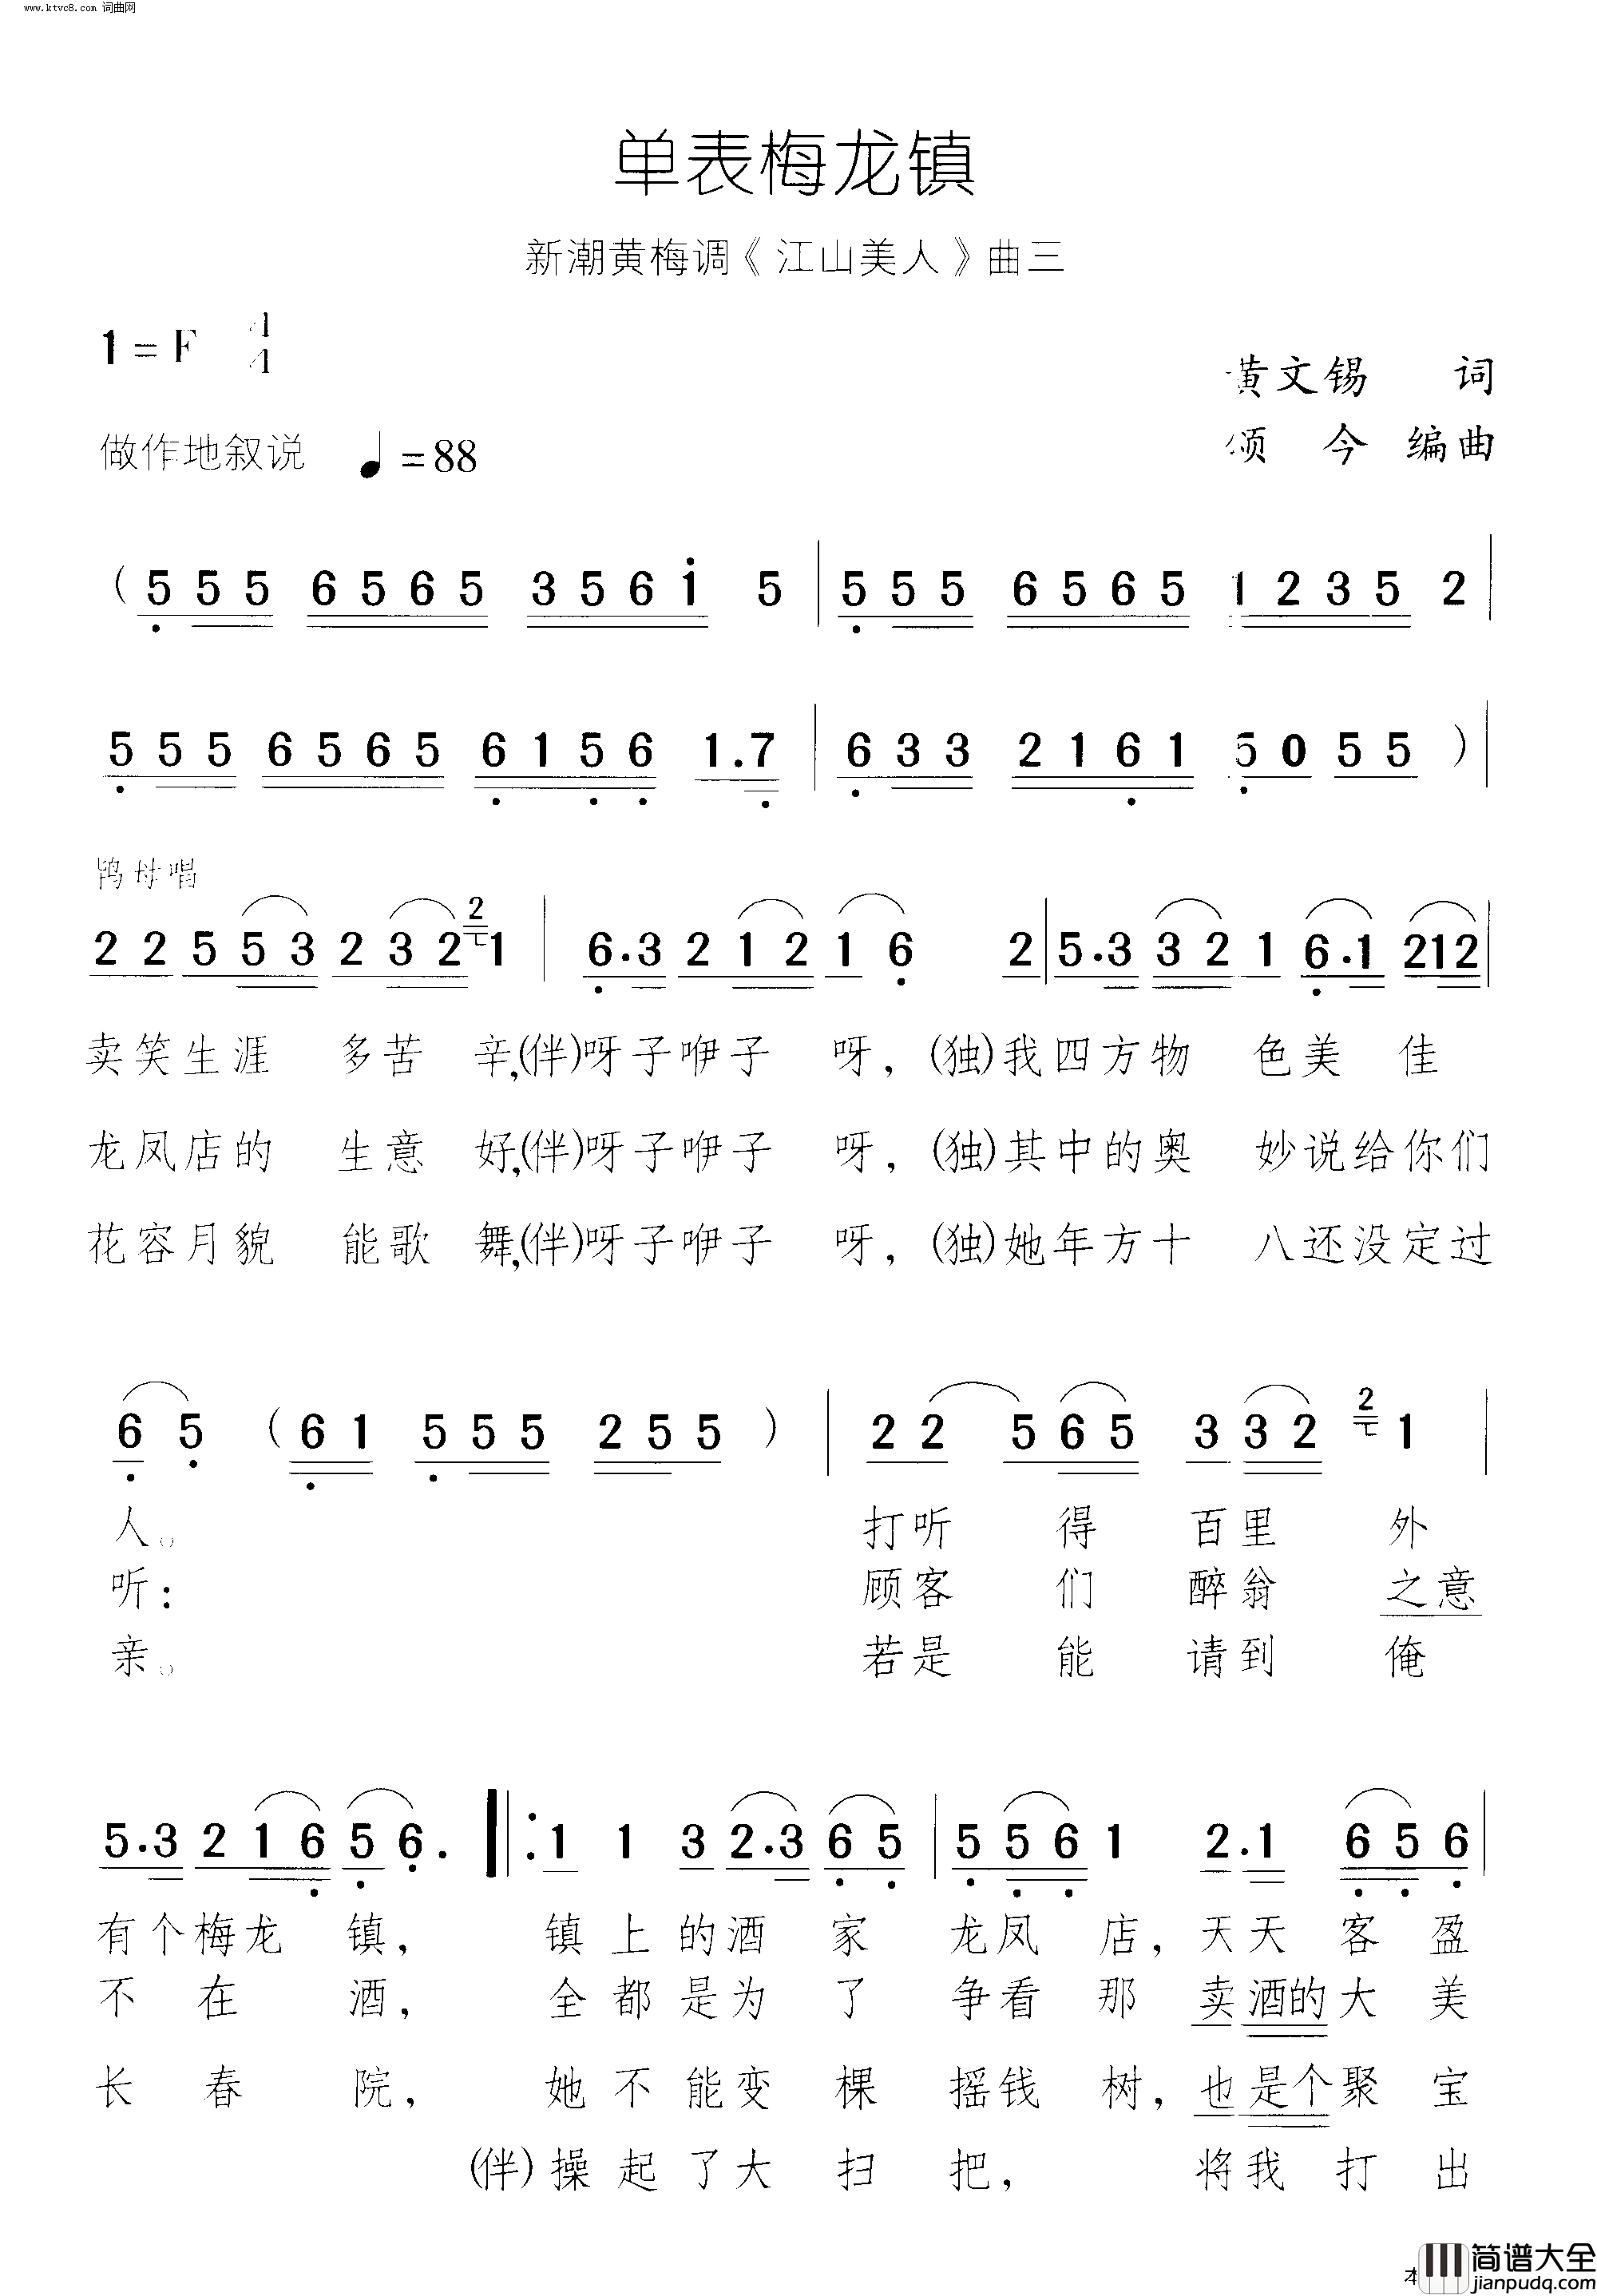 www.ktvc8.com 词曲网
单表梅龙镇
新潮黄梅调《江山美人》曲三
1=F 4/4
黄文锡 词
做作地叙说 ♩=88
颂今 编曲
( 5 5 5 6 5 6 5 3 5 6 i 5 | 5 5 5 6 5 6 5 1 2 3 5 2 |
5 5 5 6 5 6 5 6 1 5 6 1.7 | 6 3 3 2 1 6 1 5 0 5 5 ) |
鸨母唱
2 2 5 5 3 2 3 2 2 1 | 6.3 2 1 2 1 6 2 | 5.3 3 2 1 6.1 2 1 2 |
卖笑生涯 多苦 辛,(伴)呀子咿子 呀,(独)我四方物 色美 佳
龙凤店的 生意 好,(伴)呀子咿子 呀,(独)其中的奥 妙说给你们
花容月貌 能歌 舞,(伴)呀子咿子 呀,(独)她年方十 八还没定过
6 5 ( 6 1 5 5 5 2 5 5 ) | 2 2 5 6 5 3 3 2 2 1 |
人。 打听 得 百里 外
听: 顾客 们 醉翁 之意
亲。 若是 能 请到 俺
5.3 2 1 6 5 6. ‖: 1 1 3 2.3 6 5 | 5 5 6 1 2.1 6 5 6 |
有个梅龙 镇, 镇上的酒 家 龙凤 店,天天 客 盈
不 在 酒, 全都是为 了 争看 那 卖酒的大 美
长 春 院, 她不能变 棵 摇钱 树,也是个聚 宝
(伴)操起了大 扫 把, 将我 打 出
本
简谱大全
jianpudq.com